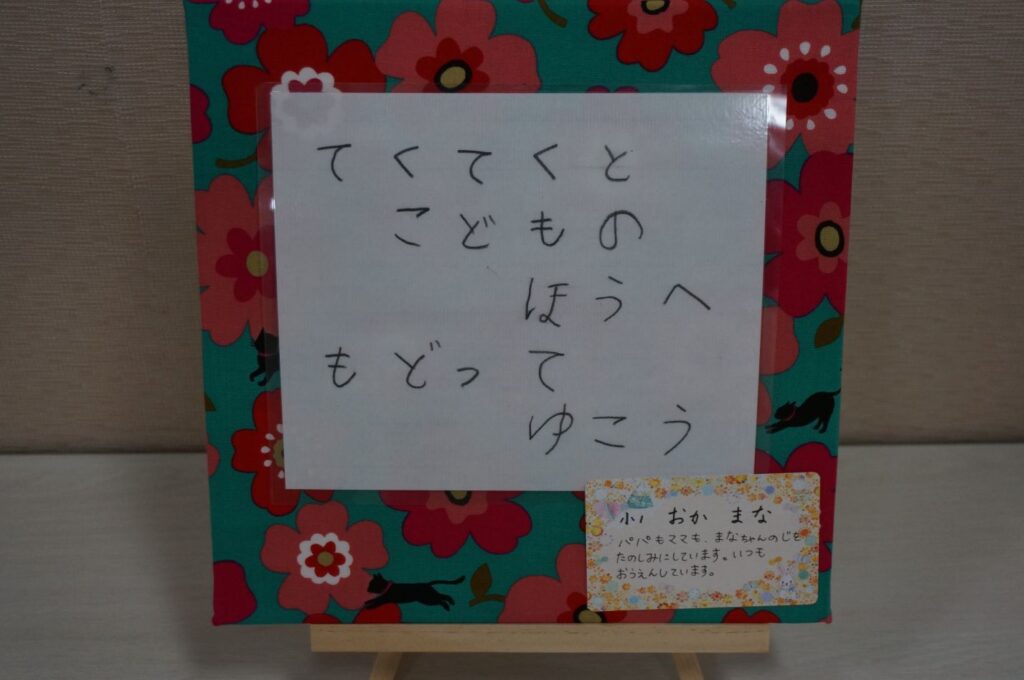 てくてくと
こどもの
ほうへ
もどって
ゆこう
小1 おか まな
パパもママも、まなちゃんのじを
たのしみにしています。いつも
おうえんしています。